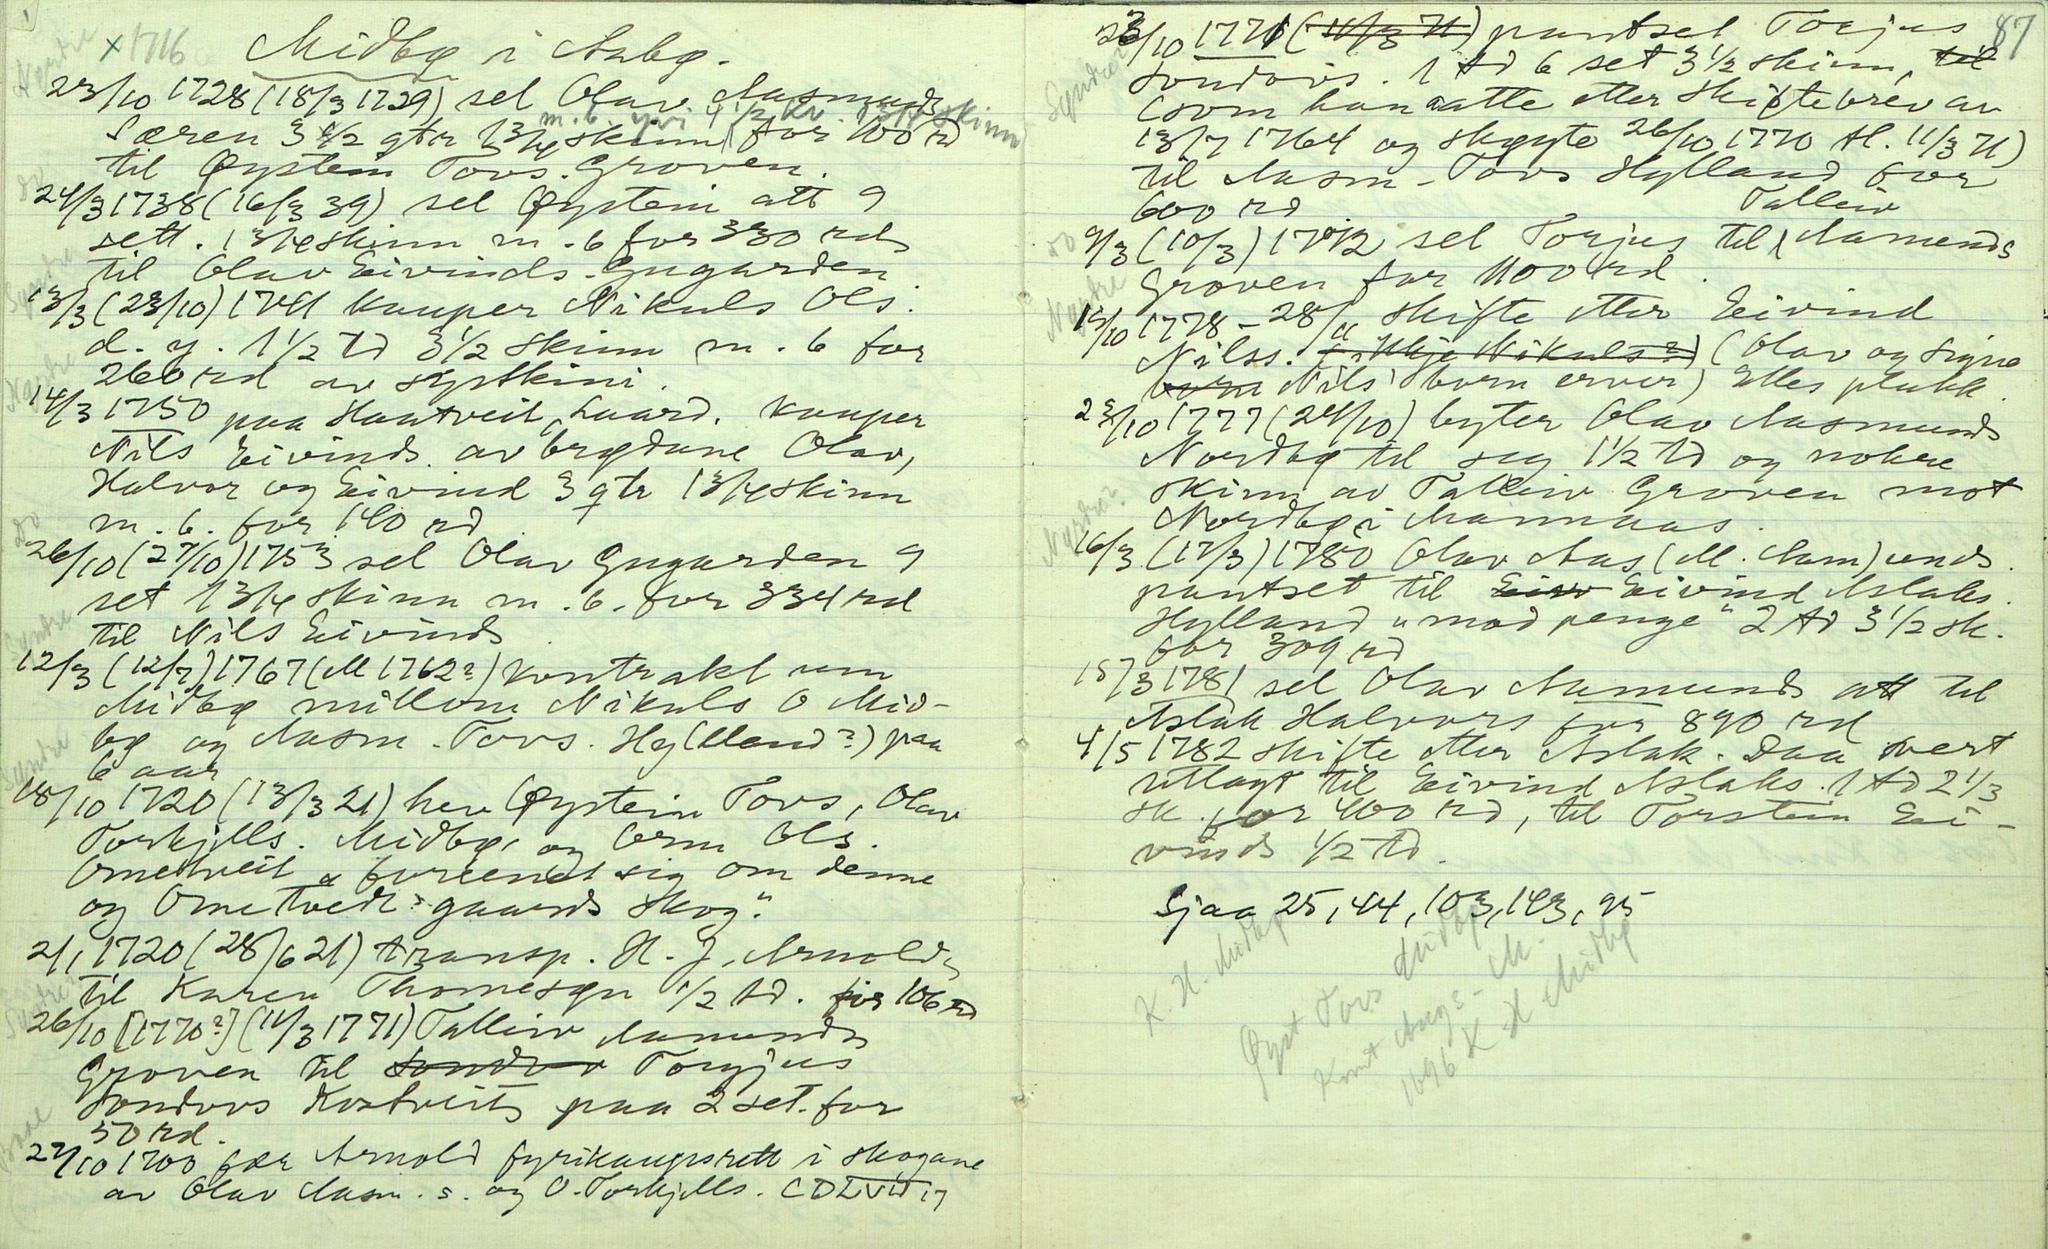 x 1716
Midbø i Aabø.
23/10 1728 (18/3 1729) sel Olav Aasmunds
m. b. yvi 4 1/2 kv. 1 3/4 skinn
Særen 3 1/2 qtr 1 3/4 skinn for 100 rd
til Øystein Tovs. Groven.
24/3 1738 (16/3 39) sel Øystein att 9
sett. 1 3/4 skinn m. b for 330 rd
til Olav Eivinds. Gugarden
13/3 (23/10) 1741 kauper Nikuls Ols.
d. y. 1 1/2 td 3 1/2 skinn m. b for
260 rd av
14/3 1750 paa Haatveit, Laard. kauper
Nils Eivinds av brødane Olav,
Halvor og Eivind 3 qtr 1 3/4 skinn
m. b. for 140 rd
26/10 (27/10) 1753 sel Olav Gugarden 9
set 1 3/4 skinn m. b. for 334 rd
til Nils Eivinds
12/3 (12/7) 1767 (M 1762?) kontrakt um
Midbø millom Nikuls O Mid-
bø og Aasm. Tovs. Hy(lland?) paa
6 aar
18/10 1720 (13/3 21) hev Øystein Tovs, Olav
Torkjells. Midbø, og Orm Ols.
Ormetveit "foreenet sig om denne
og Ormetvedt gaards skog".
2/1 1720 (28/6 21) transp. H. J. Arnold
til Karen Thomesøn 1/2 td. for 106 rd
26/10 [1770?] (11/3 1771) Talleiv Aamunds
Groven til Sondre Torjus
Sondovs Kostveit paa 2 set. for
50 rd.
27/10 1700 fær Arnold fyrikaupsrett i skogane
av Olav Aasm. s. og O. Torkjells.
87
23/10 1771 (11/3 71) pantset Torjus
Sondovs. 1 td 6 set 3 1/2 skinn, til
(som han aatte etter skiftebrev av
13/7 1764 og skøyte 26/10 1770 tl. 11/3 71)
til Aasm. Tovs Hylland for
600 rd
Talleiv
9/3 (10/3) 1772 sel Torjus til Aamunds
Groven for 1100 rd.
15/10 1778 - 28/4 skifte etter Eivind
Nilss. (Olav og Signe
born Nils' born erver) Elles plukk.
23/10 1777 (24/10) byter Olav Aasmunds
Nordbø til seg 1 1/2 td og nokre
skinn av Talleiv Groven mot
Nordbø i Mannaas.
16/3 (17/3) 1780 Olav Aas (M. Aam)unds.
pantset til Eiv Eivind Aslaks.
Hylland "mod penge" 2 td 3 1/2 sk.
for 309 rd
15/3 1781 sel Olav Aamunds att til
Aslak Halvors for 890 rd
4/5 1782 skifte etter Aslak. Daa vert
utlagt til Eivind Aslaks. 1 td 2 1/3
sk. for 400 rd, til Torstein Ei-
vinds 1/2 td.
Sjaa 25, 44, 103, 143, 95
K. H. Midbø
Øyst Tovs Midbø
1696 K H Midbø